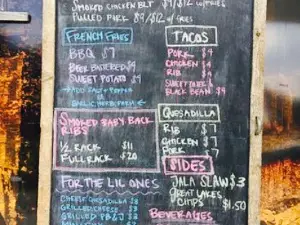 SMOKED CHICKEN BLT $9/$12 w/FRIES
PULLED PORK $9/$12 w/FRIES
FRENCH FRIES
BBQ $7
BEER BATTERED $4
SWEET POTATO $4
ADD SALT & PEPPER
GARLIC HERB
TACOS
PORK $4
CHICKEN $4
RIB $4
SWEET POTATO &
BLACK BEAN $4
SMOKED BABY BACK
RIBS
1/2 RACK $11
FULL RACK $20
QUESADILLA
RIB $7
CHICKEN $7
PORK $7
SIDES
JALA SLAW $3
GREAT LAKES
CHIPS $1.50
FOR THE LIL ONES
CHEESE QUESADILLA $3
GRILLED CHEESE $3
GRILLED PB & J $3
BEVERAGES